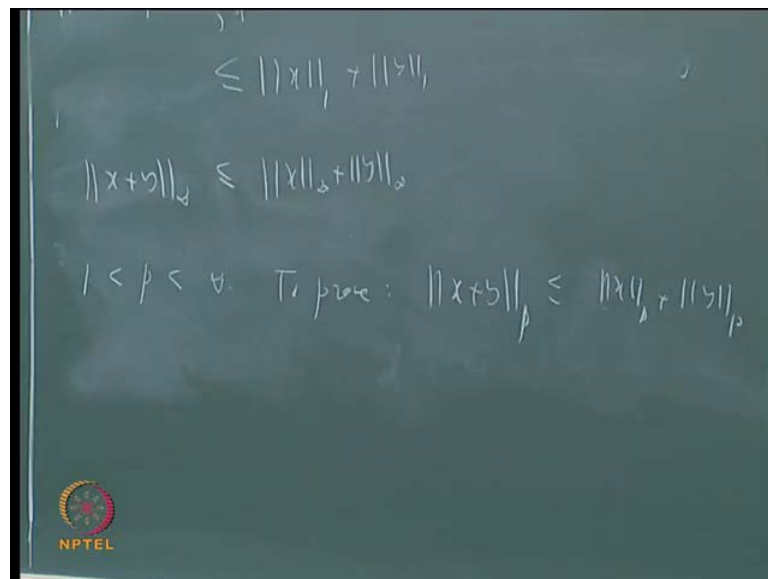 ≤ ||x||₁ + ||y||₁
||x+y||_∞ ≤ ||x||_∞ + ||y||_∞
1 < p < ∞. To prove: ||x+y||_p ≤ ||x||_p + ||y||_p
NPTEL